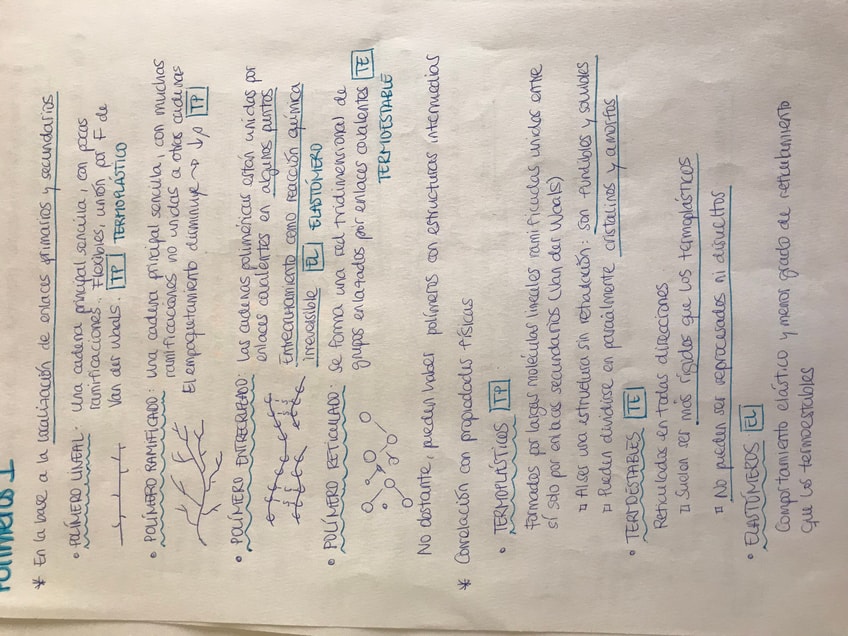 POLÍMEROS I
* En la base a la localización de enlaces primarios y secundarios
• POLÍMERO LINEAL: una cadena principal sencilla, con pocas
ramificaciones. Flexibles, unión por F de
Van der Waals. TP TERMOPLÁSTICO
• POLÍMERO RAMIFICADO: una cadena principal sencilla, con muchas
ramificaciones no unidas a otras cadenas
El empaquetamiento disminuye → ↓ρ TP
• POLÍMERO ENTRECRUZADO: las cadenas poliméricas están unidas por
enlaces covalentes en algunos puntos
Entrecruzamiento como reacción química
irreversible EL ELASTÓMERO
• POLÍMERO RETICULADO: se forma una red tridimensional de
grupos enlazados por enlaces covalentes TE
TERMOESTABLE
No obstante, pueden haber polímeros con estructuras intermedias
* Correlación con propiedades físicas
• TERMOPLÁSTICOS TP
Formados por largas moléculas lineales ramificadas unidas entre
sí solo por enlaces secundarios (Van der Waals)
Al ser una estructura sin reticulación: son fundibles y solubles
Pueden dividirse en parcialmente cristalinos y amorfos
• TERMOESTABLES TE
Reticulados en todas direcciones
Suelen ser más rígidos que los termoplásticos
No pueden ser reprocesados ni disueltos
• ELASTÓMEROS EL
Comportamiento elástico y menor grado de reticulamiento
que los termoestables